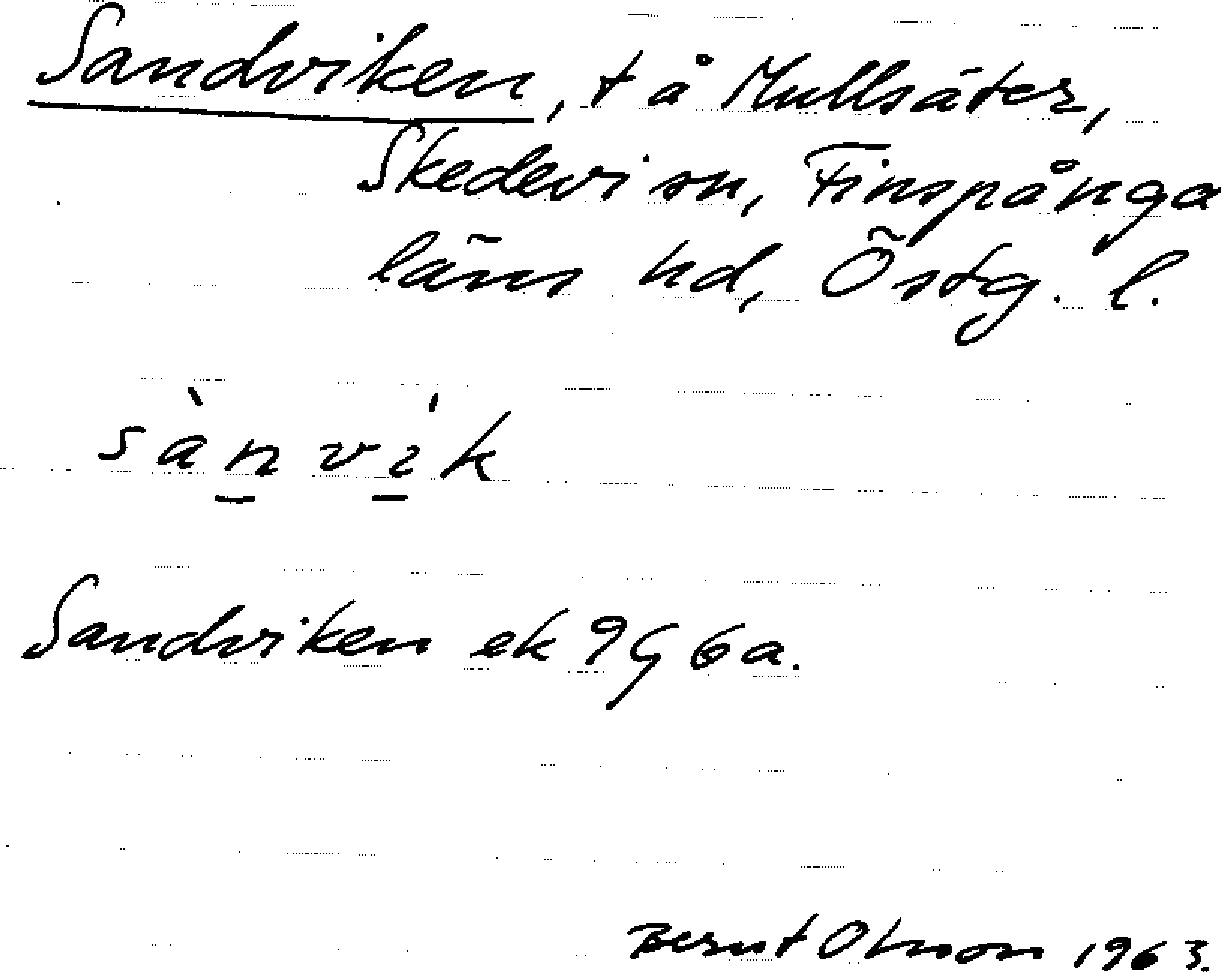 Sandviken, t å Mullsäter,
Skedevi sn, Finspånga
läns hd, Östg. l.
sànvík
Sandviken ek 9G6a.
Bernt Olsson 1963.